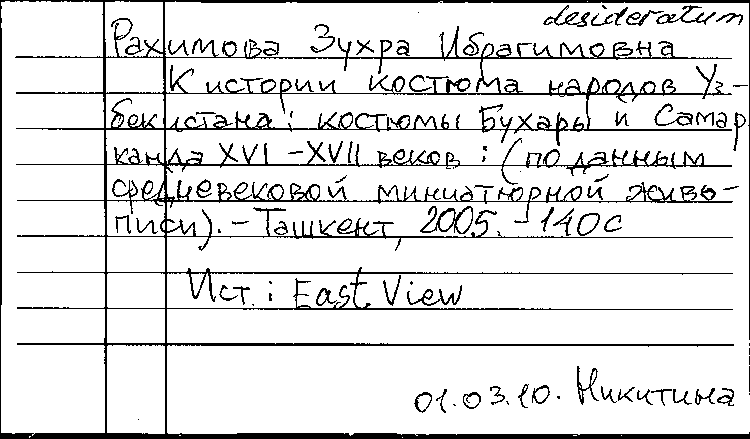 desideratum
Рахимова Зухра Ибрагимовна
К истории костюма народов Уз-
бекистана : костюмы Бухары и Самар
канда XVI - XVII веков : (по данным
средневековой миниатюрной живо-
писи). - Ташкент, 2005. - 140 с
Ист. : East View
01.03.10. Никитина